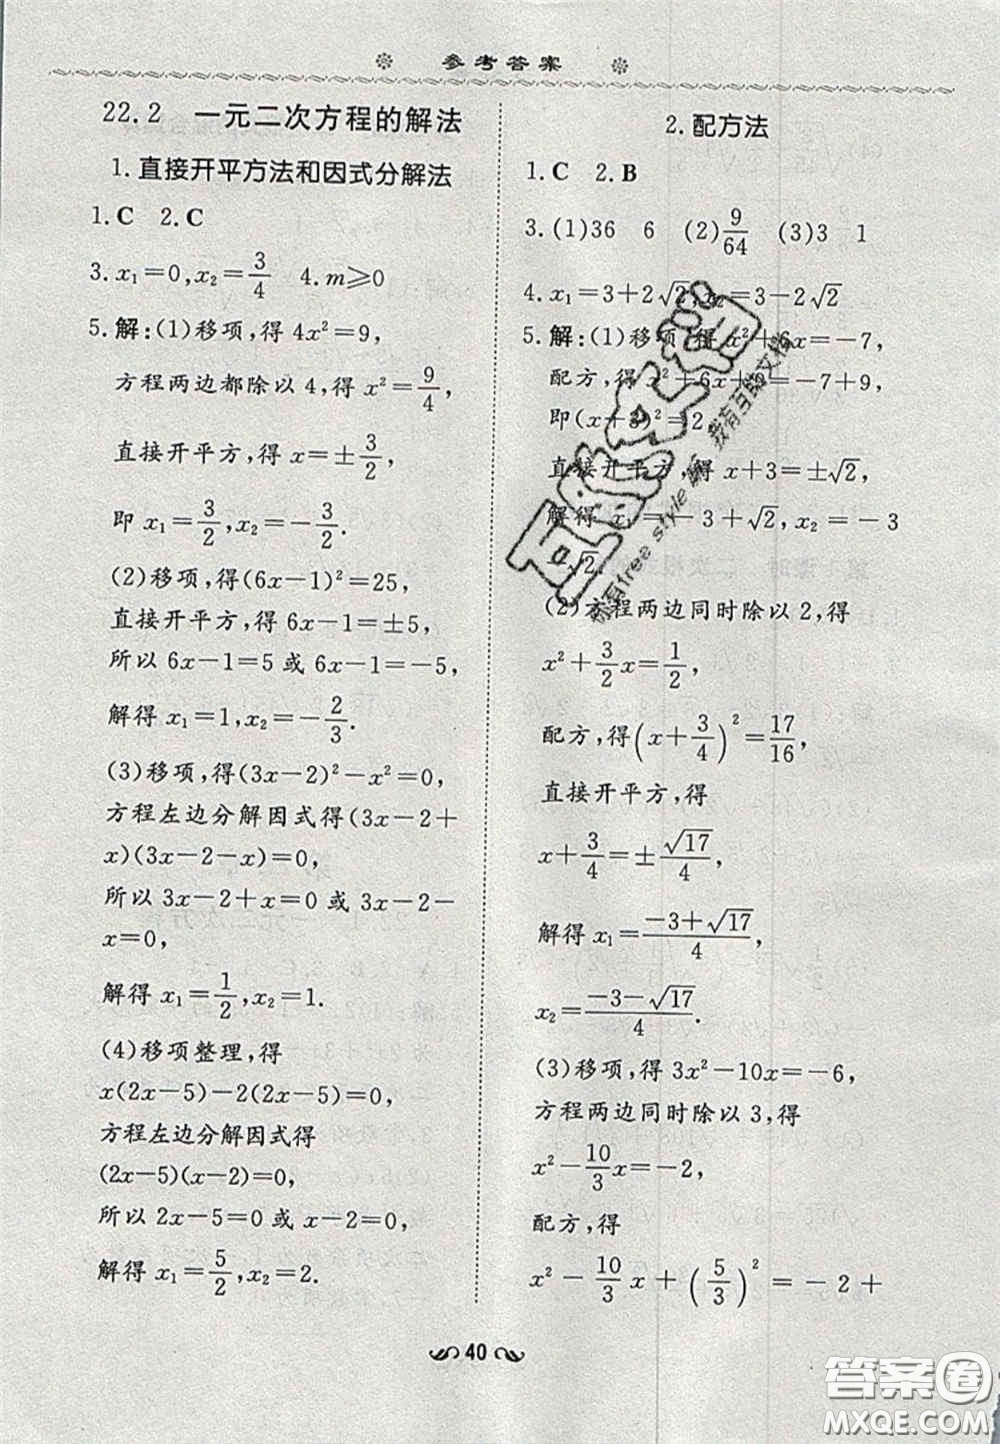 参考答案
22.2 一元二次方程的解法
1.直接开平方法和因式分解法
1.C 2.C
3.x₁=0,x₂=3/4 4.m≥0
5.解:(1)移项,得 4x²=9,
方程两边都除以 4,得 x²=9/4,
直接开平方,得 x=±3/2,
即 x₁=3/2,x₂=-3/2.
(2)移项,得(6x-1)²=25,
直接开平方,得 6x-1=±5,
所以 6x-1=5 或 6x-1=-5,
解得 x₁=1,x₂=-2/3.
(3)移项,得(3x-2)²-x²=0,
方程左边分解因式得(3x-2+
x)(3x-2-x)=0,
所以 3x-2+x=0 或 3x-2-
x=0,
解得 x₁=1/2,x₂=1.
(4)移项整理,得
x(2x-5)-2(2x-5)=0,
方程左边分解因式得
(2x-5)(x-2)=0,
所以 2x-5=0 或 x-2=0,
解得 x₁=5/2,x₂=2.
2.配方法
1.C 2.B
3.(1)36 6 (2)9/64 (3)3 1
4.x₁=3+2√2,x₂=3-2√2
5.解:(1)移项,得 x²+6x=-7,
配方,得 x²+6x+9=-7+9,
即(x+3)²=2,
直接开平方,得 x+3=±√2,
解得 x₁=-3+√2,x₂=-3
-√2.
(2)方程两边同时除以 2,得
x²+3/2x=1/2,
配方,得(x+3/4)²=17/16,
直接开平方,得
x+3/4=±√17/4,
解得 x₁=(-3+√17)/4,
x₂=(-3-√17)/4.
(3)移项,得 3x²-10x=-6,
方程两边同时除以 3,得
x²-10/3x=-2,
配方,得
x²-10/3x+(5/3)²=-2+
40
答案圈
MXQE.COM